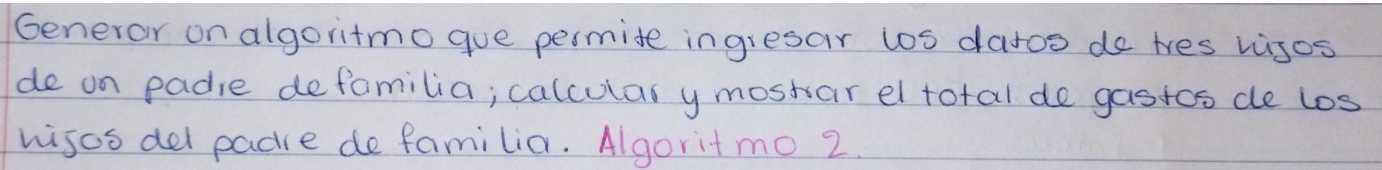 Generar un algoritmo que permite ingresar los datos de tres hijos
de un padre de familia; calcular y mostrar el total de gastos de los
hijos del padre de familia. Algoritmo 2.